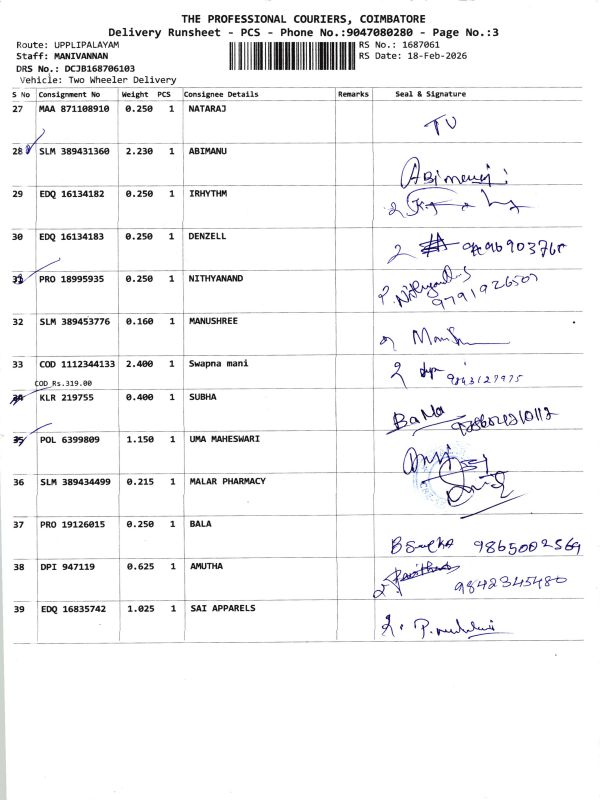 THE PROFESSIONAL COURIERS, COIMBATORE
Delivery Runsheet - PCS - Phone No.:9047080280 - Page No.:3
Route: UPPLIPALAYAM RS No.: 1687061
Staff: MANIVANNAN RS Date: 18-Feb-2026
DRS No.: DCJB168706103
Vehicle: Two Wheeler Delivery
S No Consignment No Weight PCS Consignee Details Remarks Seal & Signature
27 MAA 871108910 0.250 1 NATARAJ TV
28 SLM 389431360 2.230 1 ABIMANU
29 EDQ 16134182 0.250 1 IRHYTHM
30 EDQ 16134183 0.250 1 DENZELL
31 PRO 18995935 0.250 1 NITHYANAND P. Nithyanand 9791926507
32 SLM 389453776 0.160 1 MANUSHREE
33 COD 1112344133 2.400 1 Swapna mani 9843127975
COD Rs.319.00
34 KLR 219755 0.400 1 SUBHA
35 POL 6399809 1.150 1 UMA MAHESWARI
36 SLM 389434499 0.215 1 MALAR PHARMACY
37 PRO 19126015 0.250 1 BALA 9865002569
38 DPI 947119 0.625 1 AMUTHA 9842345480
39 EDQ 16835742 1.025 1 SAI APPARELS